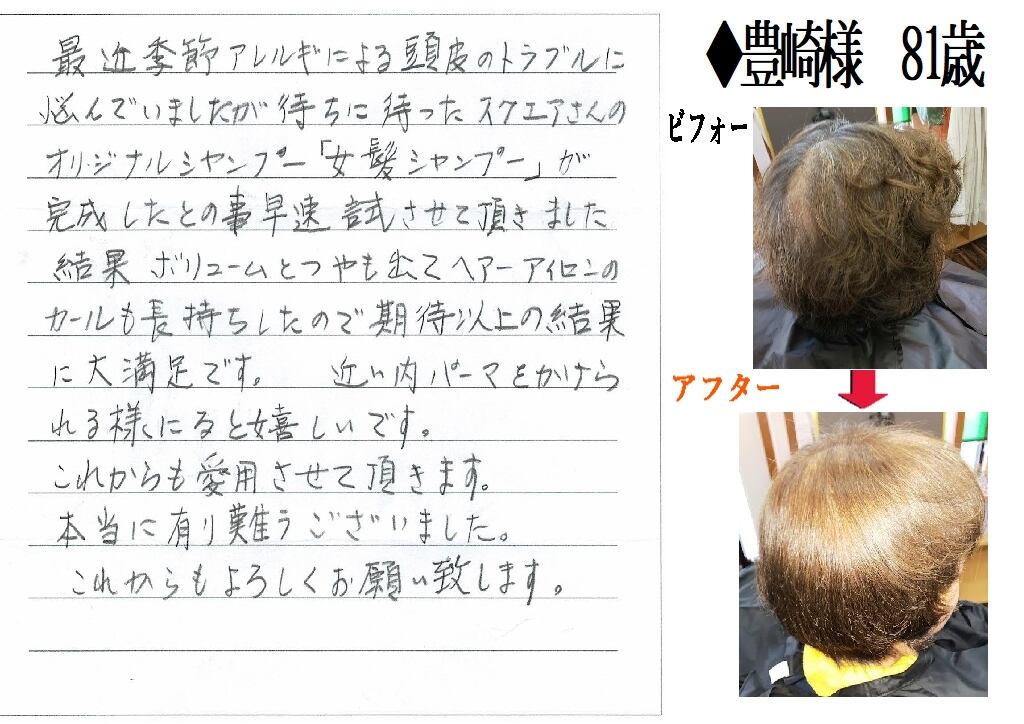 最近季節アレルギによる頭皮のトラブルに
悩んでいましたが待ちに待ったスクエアさんの
オリジナルシャンプー「女髪シャンプー」が
完成したとの事早速試させて頂きました
結果 ボリュームとつやも出てヘアーアイロンの
カールも長持ちしたので期待以上の結果
に大満足です。 近い内パーマをかけら
れる様にると嬉しいです。
これからも愛用させて頂きます。
本当に有り難うございました。
これからもよろしくお願い致します。
◆豊崎様 81歳
ビフォー
アフター